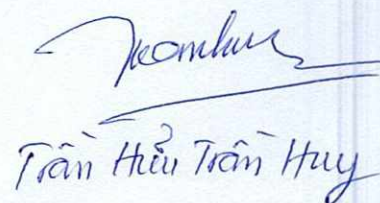 Trần Hữu Trần Huy